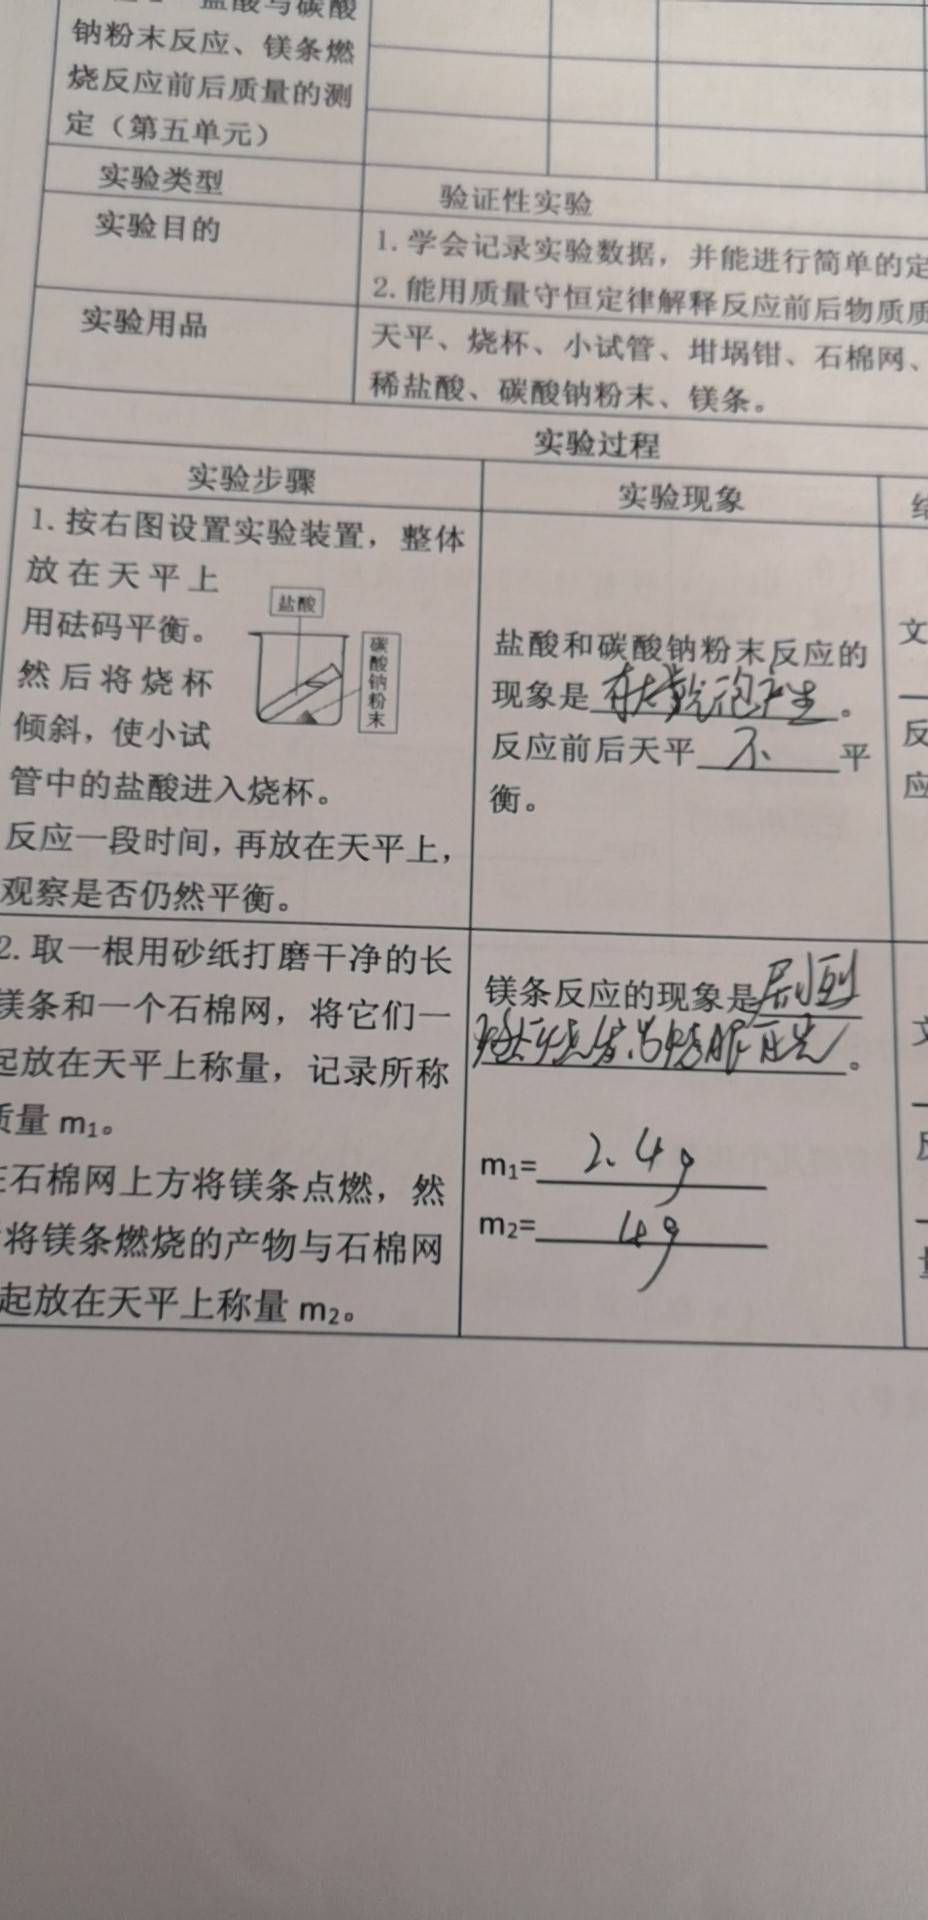 盐酸与碳酸
钠粉末反应、镁条燃
烧反应前后质量的测
定（第五单元）
实验类型
验证性实验
实验目的
1. 学会记录实验数据，并能进行简单的定
2. 能用质量守恒定律解释反应前后物质质
实验用品
天平、烧杯、小试管、坩埚钳、石棉网、
稀盐酸、碳酸钠粉末、镁条。
实验过程
实验步骤
实验现象
1. 按右图设置实验装置，整体
放在天平上
用砝码平衡。
然后将烧杯
倾斜，使小试
管中的盐酸进入烧杯。
反应一段时间，再放在天平上，
观察是否仍然平衡。
盐酸
碳酸钠粉末
盐酸和碳酸钠粉末反应的
现象是有大量气泡产生。
反应前后天平不平
衡。
文
反
应
2. 取一根用砂纸打磨干净的长
镁条和一个石棉网，将它们一
起放在天平上称量，记录所称
质量 m₁。
石棉网上方将镁条点燃，然
将镁条燃烧的产物与石棉网
起放在天平上称量 m₂。
镁条反应的现象是剧烈
燃烧
m₁= 2.4g
m₂= 4g